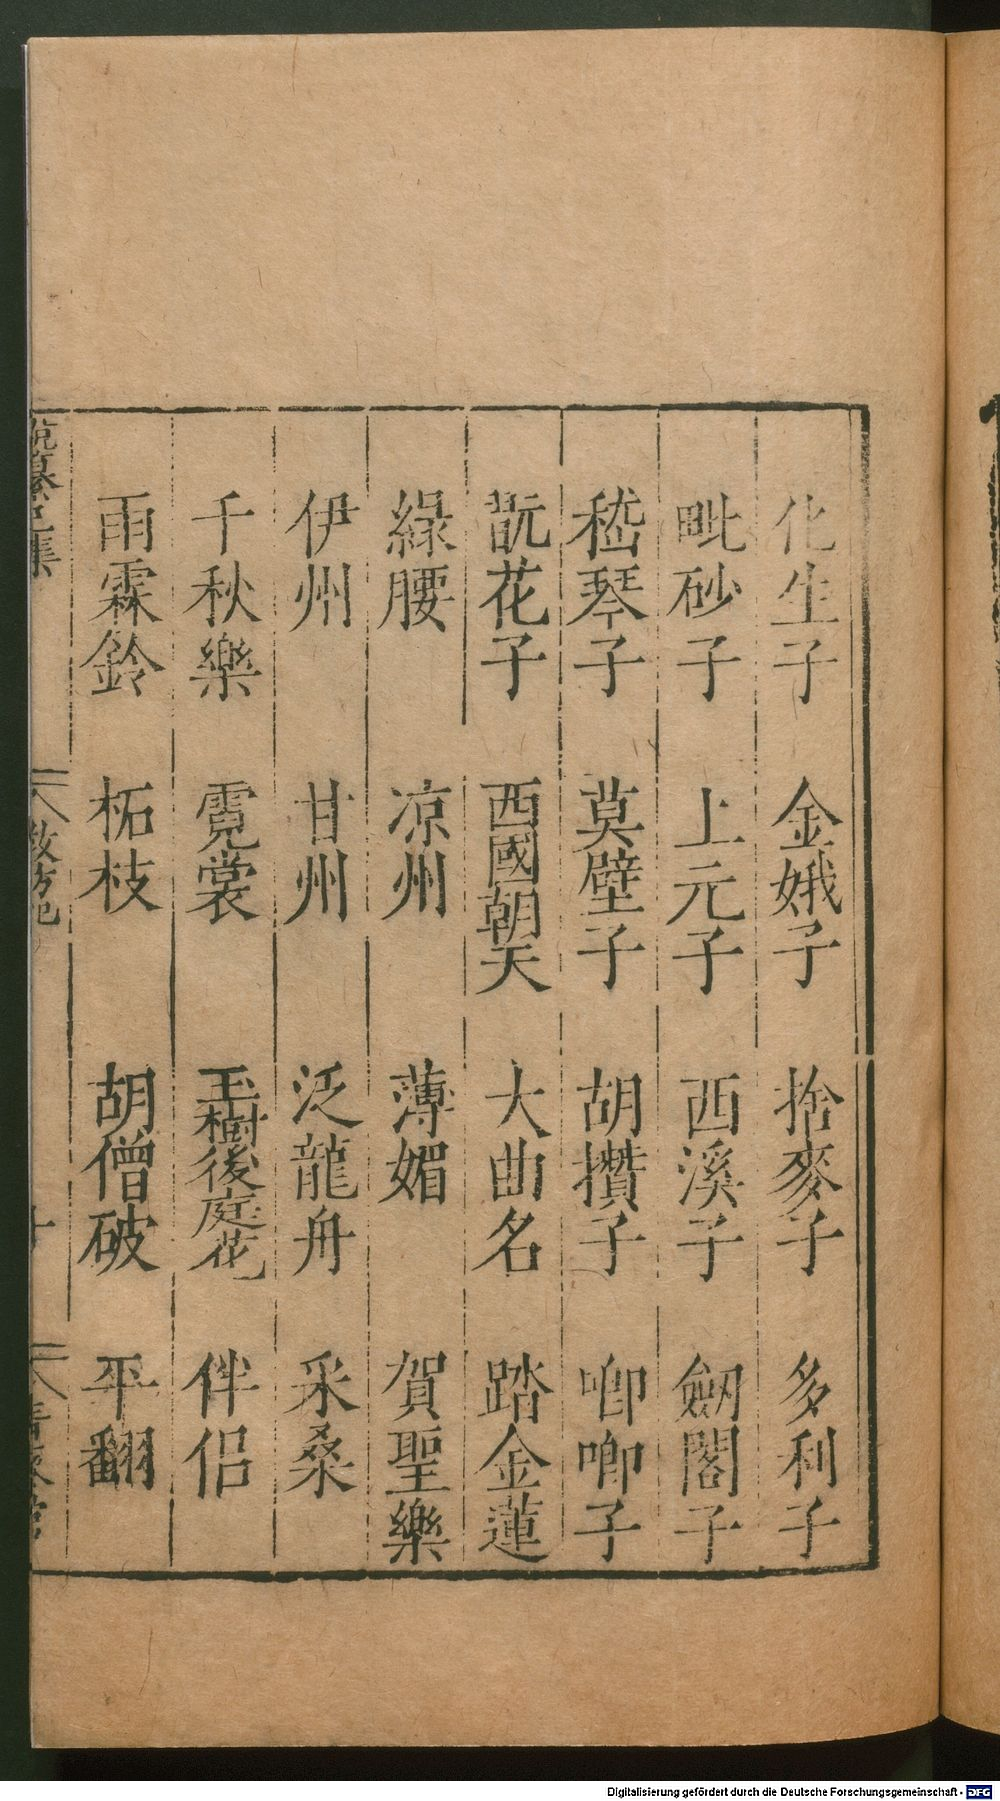 化生子 金娥子 捨麥子 多利子
毗砂子 上元子 西溪子 劒閣子
嵇琴子 莫壁子 胡攢子 唧唧子
翫花子 西國朝天 大曲名 踏金蓮
綠腰 凉州 薄媚 賀聖樂
伊州 甘州 泛龍舟 采桑
千秋樂 霓裳 玉樹後庭花 伴侣
雨霖鈴 柘枝 胡僧破 平翻
教坊記 十
Digitalisierung gefördert durch die Deutsche Forschungsgemeinschaft - DFG